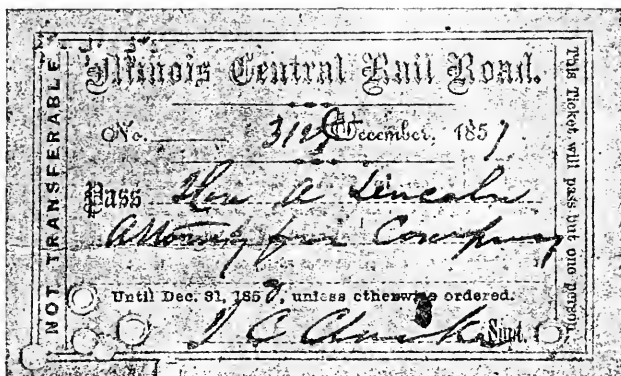 NOT TRANSFERABLE
Illinois Central Rail Road.
No. 31st December, 1857
Pass Hon A Lincoln
Attorney for Company
Until Dec. 31, 1858, unless otherwise ordered.
Supt.
This Ticket will pass but one person